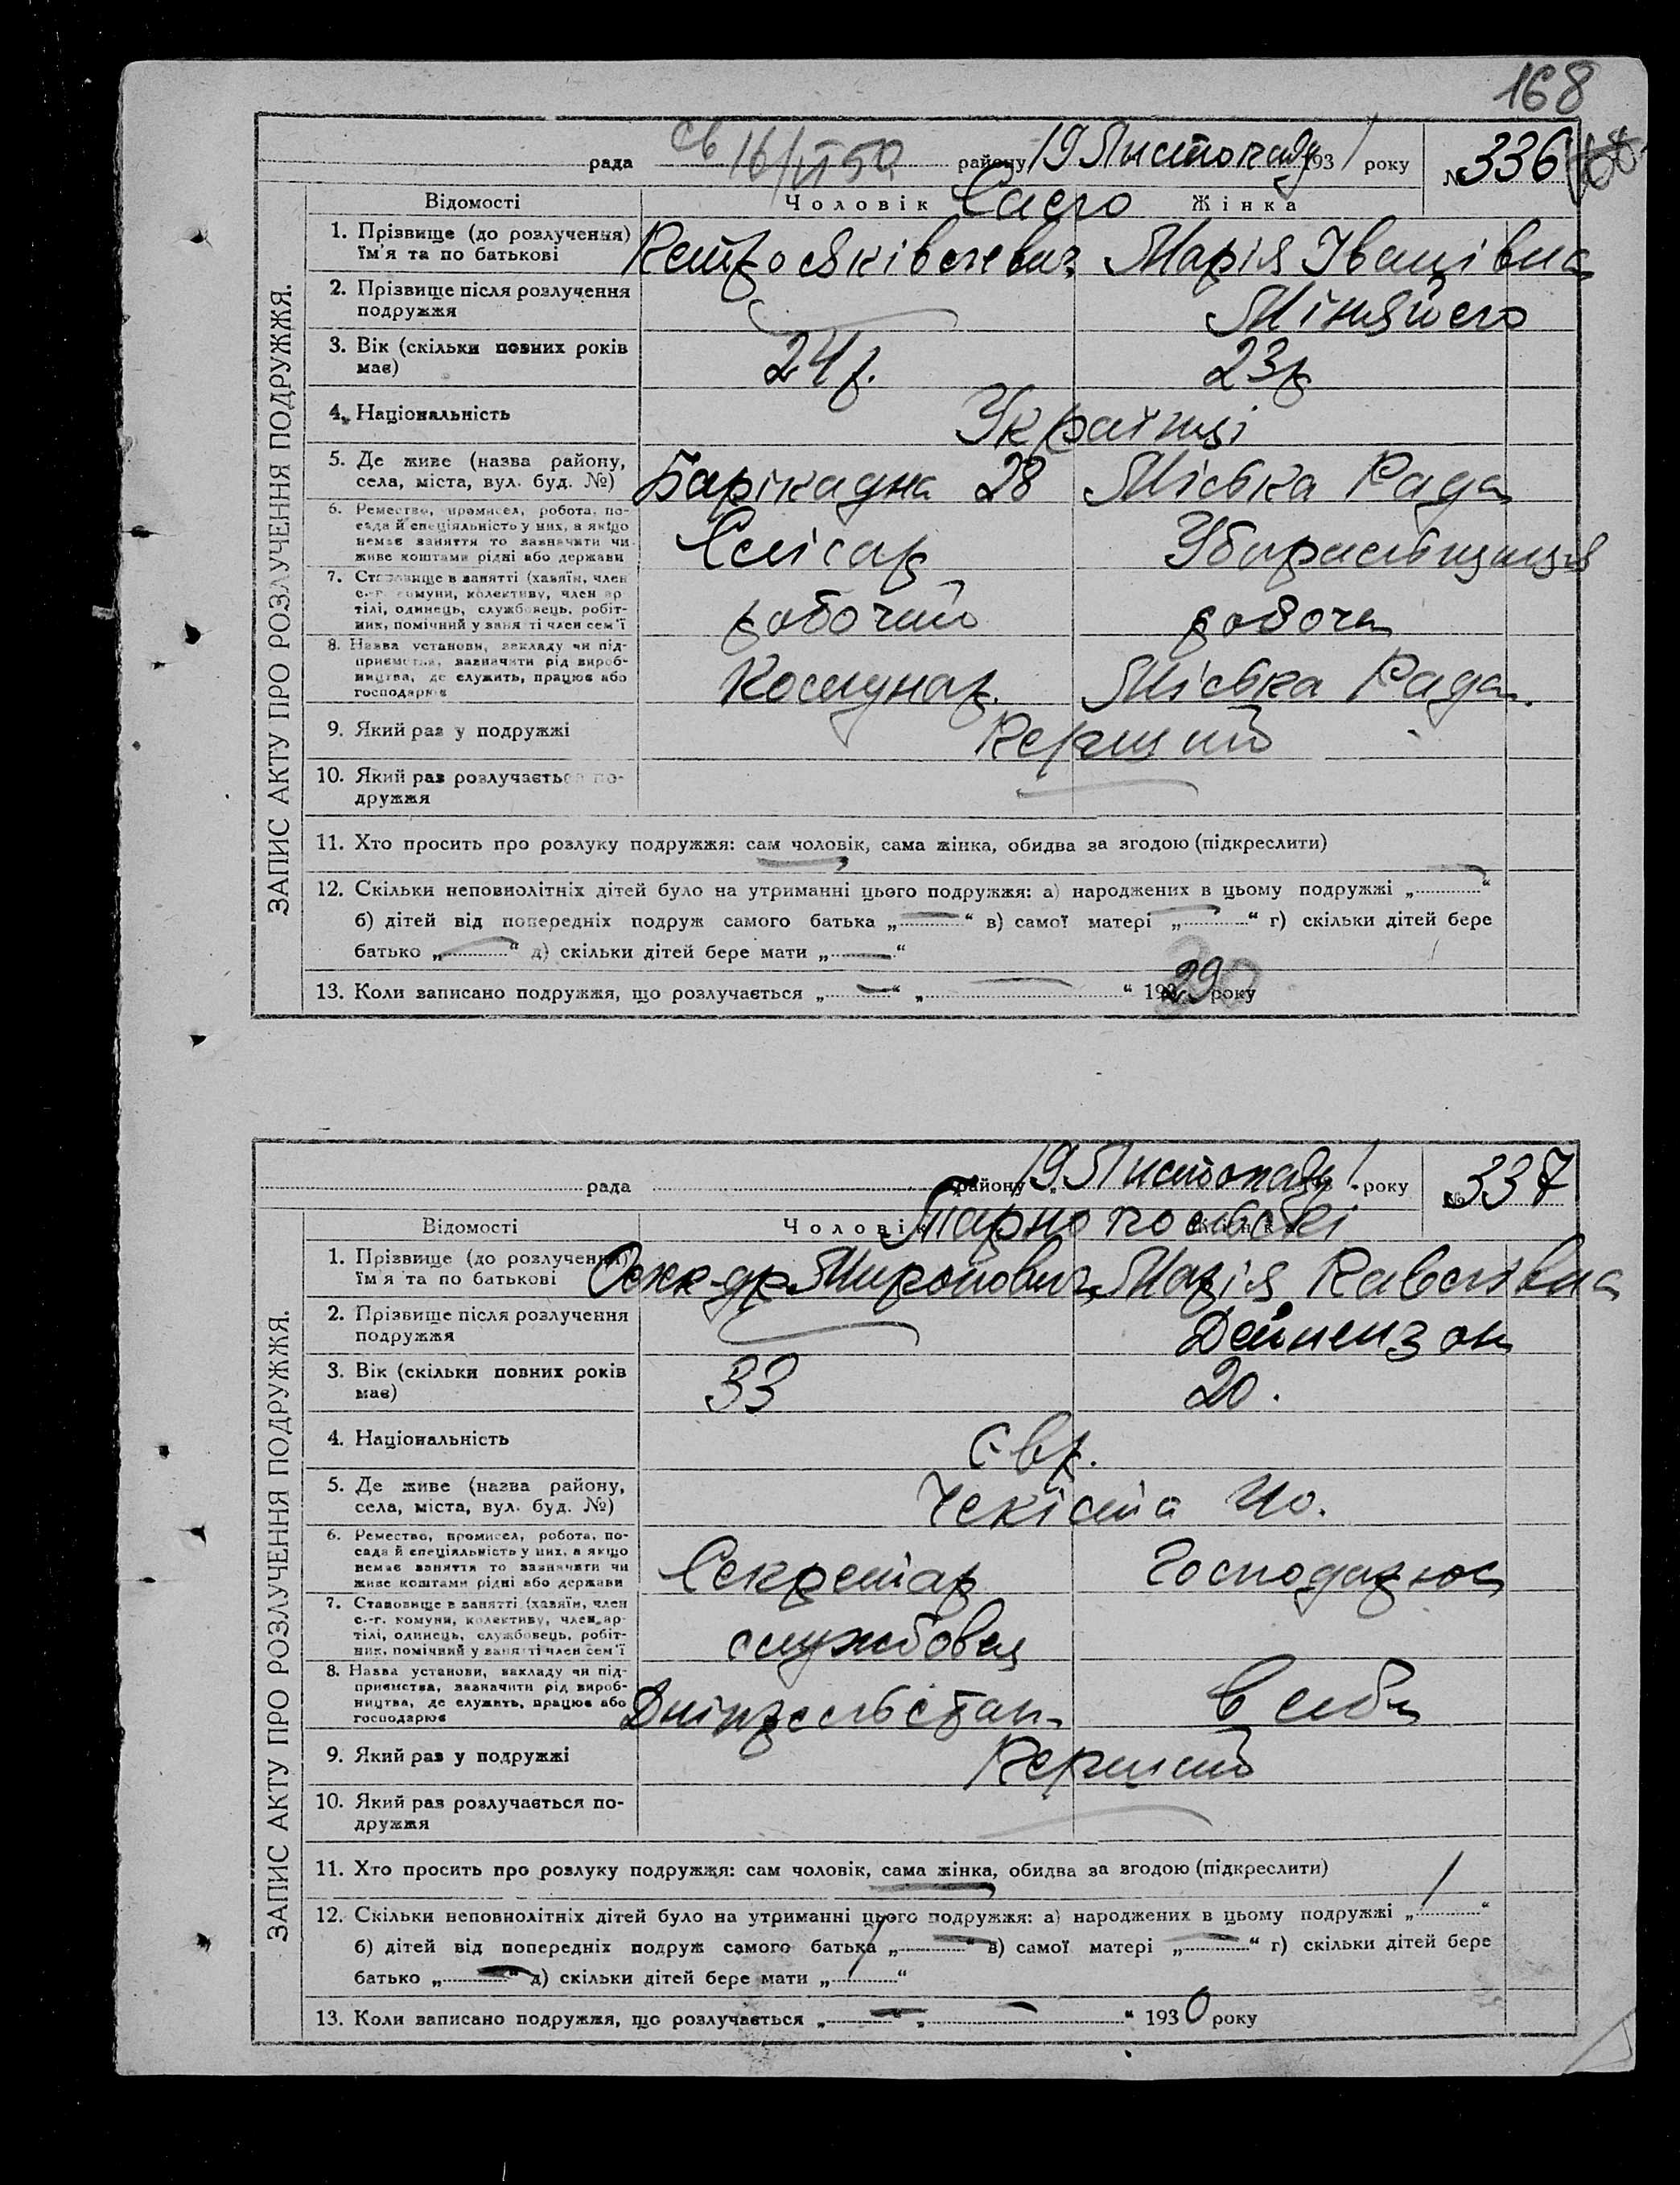 168
рада св 16/VI 50 району 19 Листопаду 1931 року № 336
Відомості Чоловік Сасго Жінка
1. Прізвище (до розлучення) їм'я та по батькові Марія Іванівна
2. Прізвище після розлучення подружжя
3. Вік (скільки повних років має) 24 р. 23 р
4. Національність Українці
5. Де живе (назва району, села, міста, вул. буд. №) Барікадна 28 Міська Рада
6. Ремество, промисел, робота, посада й спеціяльність у них, а якщо немає заняття то зазначити чи живе коштами рідні або держави Слісар
7. Становище в занятті (хазяїн, член с.-г. комуни, колективу, член артілі, одинець, службовець, робітник, помічний у занятті член сем'ї робочий робоча
8. Назва установи, закладу чи підприємства, зазначити рід виробництва, де служить, працює або господарює Комунар. Міська Рада.
9. Який раз у подружжі Перший
10. Який раз розлучається подружжя
ЗАПИС АКТУ ПРО РОЗЛУЧЕННЯ ПОДРУЖЖЯ.
11. Хто просить про розлуку подружжя: сам чоловік, сама жінка, обидва за згодою (підкреслити)
12. Скільки неповнолітніх дітей було на утриманні цього подружжя: а) народжених в цьому подружжі „ — “
б) дітей від попередніх подруж самого батька „ — “ в) самої матері „ — “ г) скільки дітей бере
батько „ — “ д) скільки дітей бере мати „ — “
13. Коли записано подружжя, що розлучається „ — “ „ — “ 1929 року
рада району 19 Листопаду 1 року № 337
Відомості Чоловік Тарнопольські Жінка
1. Прізвище (до розлучення) їм'я та по батькові Миронович Марія Павлівна
2. Прізвище після розлучення подружжя
3. Вік (скільки повних років має) 33 20.
4. Національність Євр.
5. Де живе (назва району, села, міста, вул. буд. №) Чекіста
6. Ремество, промисел, робота, посада й спеціяльність у них, а якщо немає заняття то зазначити чи живе коштами рідні або держави Секретар
7. Становище в занятті (хазяїн, член с.-г. комуни, колективу, член артілі, одинець, службовець, робітник, помічний у занятті член сем'ї службовец
8. Назва установи, закладу чи підприємства, зазначити рід виробництва, де служить, працює або господарює
9. Який раз у подружжі Перший
10. Який раз розлучається подружжя
ЗАПИС АКТУ ПРО РОЗЛУЧЕННЯ ПОДРУЖЖЯ.
11. Хто просить про розлуку подружжя: сам чоловік, сама жінка, обидва за згодою (підкреслити)
12. Скільки неповнолітніх дітей було на утриманні цього подружжя: а) народжених в цьому подружжі „ 1 “
б) дітей від попередніх подруж самого батька „ — “ в) самої матері „ — “ г) скільки дітей бере
батько „ — “ д) скільки дітей бере мати „ 1 “
13. Коли записано подружжя, що розлучається „ — “ „ — “ 1930 року